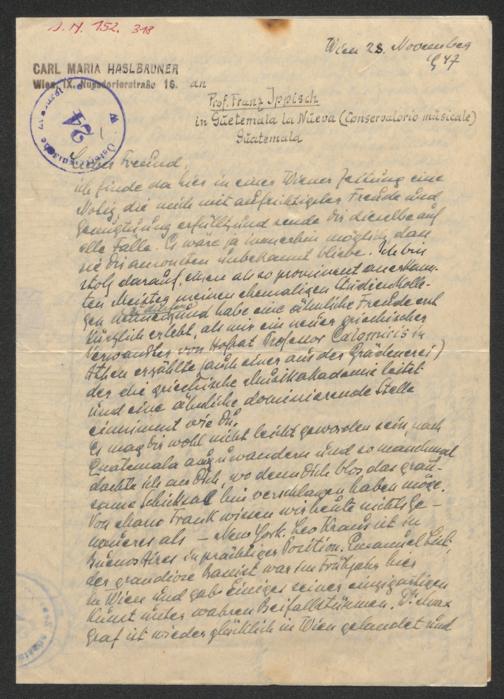 J.N. 152.318
Wien 23. November
1947
CARL MARIA HASLBRUNER
Wien, IX. Nussdorferstraße 16.
an
Prof. Franz Ippisch
in Guetemala la Nueva (Conservatorio musicale)
Guatemala
24
Lieber Freund,
ich finde da hier in einer Wiener Zeitung eine
Notiz die mich mit aufrichtigster Freude und
Genugtuung erfüllt und sende Dir dieselbe auf
alle Fälle. Es wäre ja immerhin möglich, dass
sie Dir ansonsten unbekannt bliebe. Ich bin
stolz darauf, einen als so prominent anerkann-
ten Meister meinen ehemaligen Studienkolle-
gen und habe eine ähnliche Freude erst
kürzlich erlebt, als mir ein neuer griechischer
Verwandter von Hofrat Professor in
Athen erzählte (auch einer aus der Grädenerei)
der die griechische Musikakademie leitet
und eine ähnliche dominierende Stelle
einnimmt wie Du.
Es mag dir wohl nicht leicht geworden sein, nach
Guatemala auszuwandern und so manchmal
dachte ich an Dich, wo denn Dich blos das grau-
same Schicksal hin verschlagen haben möge.
Von Mano Frank wissen wir heute nichts ge-
naueres als – New York. Leo Kraus ist in
Buenos Aires in prächtiger Position. Emanuel List,
der grandiose Bassist war im Frühjahr hier
in Wien und gab einiges seiner einzigartigen
Kunst unter wahren Beifallstürmen. Dr. Max
Graf ist wieder glücklich in Wien gelandet und